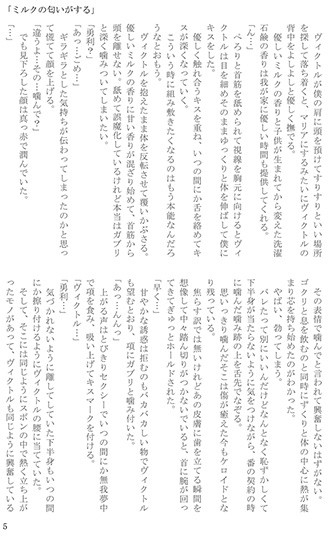 「ミルクの匂いがする」
ヴィクトルが僕の肩に頭を預けてすりすりといい場所
を探して落ち着くと、マリアにするみたいにヴィクトルの
背中をよしよしと優しく撫でる。
石鹸の香りと子供が生まれてから変えた洗濯
洗剤の香りは我が家に優しい時間も提供してくれる。
「ん…」
ぺろりと首筋を舐められて視線を胸元に向けるとヴィ
クトルは目を細めそのままゆっくりと体を伸ばして僕に
キスをし。
優しく触れ合うキスを重ね、いつの間にか舌を絡めてキ
スが深くなっていく。
こういう時に組み敷きたくなるのはもう本能なんだろ
うなとおもう。
ヴィクトルを抱えたまま体を反転させて覆いかぶさる。
優しいミルクの香りに甘い香りが混ざり始めて、首筋から
頭を離せない。舐めて誤魔化しているけれど本当はガブリ
と深く噛みついてしまいたい。
「勇利？」
「あっ…ごめ…」
ギラギラとした気持ちが伝わってしまったのかと思っ
て慌てて顔を上げる。
「違うよ…その…噛んで？」
でも見下ろした顔は真っ赤で潤んでいた。
その表情で噛んでと言われて興奮しないはずがない。
ゴクリと息を飲むのと同時にずくりと体の中心に熱が集
まり芯を持ち始めたのがわかった。
やばい、勃ってしまう。
バレたって別にいいんだけどなんとなく恥ずかしくて
下半身が当たらないように気をつけながら、番の契約の時
に噛んだ噛み跡の上を舌先でなぞる。
思いっきり噛んだそこは傷が癒えた今もケロイドとな
り残っている。
焦らす訳では無いけれどあの皮膚に歯を立てる瞬間を
想像して中々踏ん切りがつかないでいると、首に腕が回っ
てきてぎゅっとホールドされた。
「早く…」
甘やかな誘惑は拒むのもバカバカしい物でヴィクトル
も望むとおり、項にガブリと噛み付いた。
「あっ…んんっ」
上がる声はとびきりセクシーでいつの間にか無我夢中
で項を食み、吸い上げてキスマークを付ける。
「ヴィクトル…」
「勇利…」
気づかれないように離してしていた下半身もいつの間
にか擦り付けるようにヴィクトルの腰に当てていた。
そして、そこには同じようにズボンの中で熱く立ち上が
ったモノがあって、ヴィクトルも同じように興奮している
5